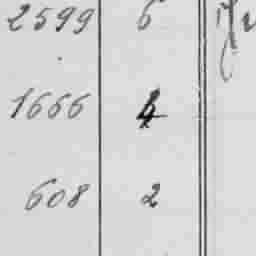 2599 6
1666 4
608 2